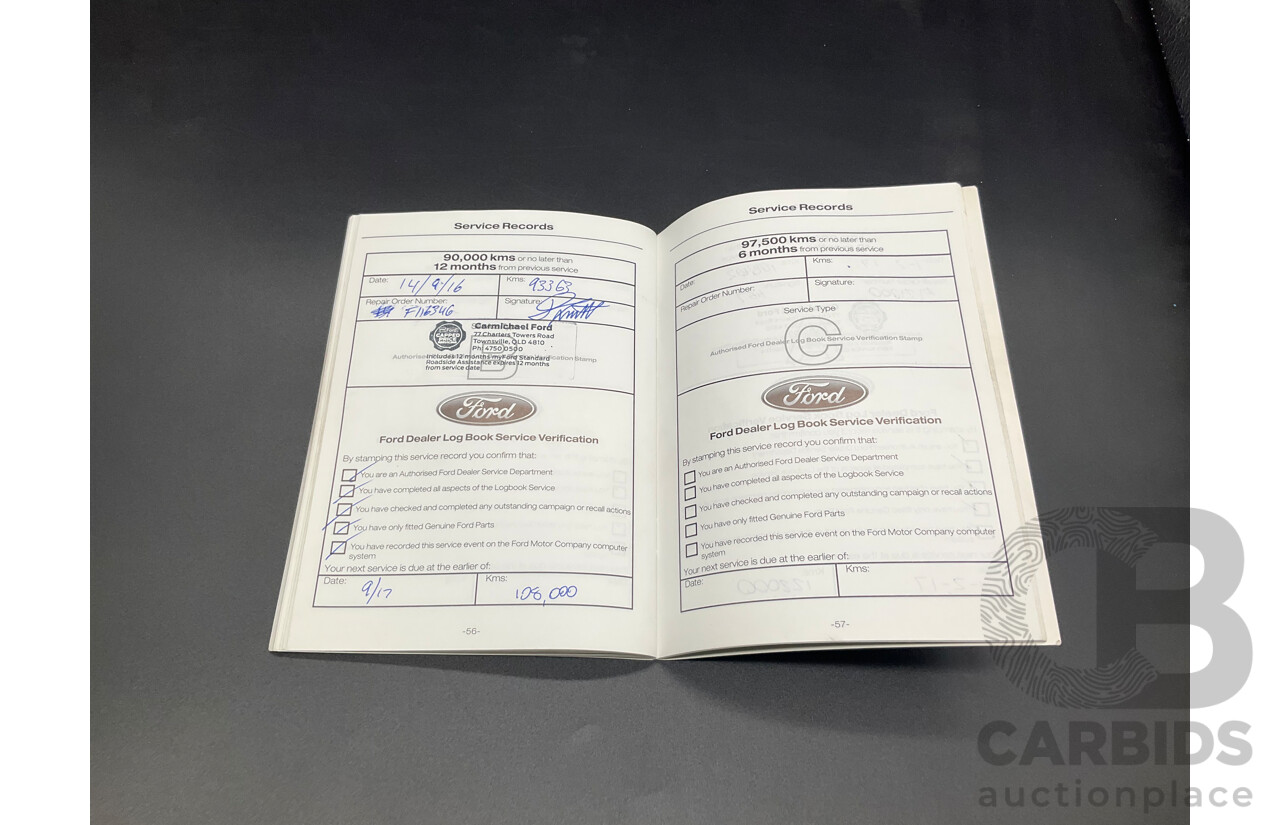 Service Records
90,000 kms or no later than
12 months from previous service
Date: 14/9/16 Kms: 93363
Repair Order Number: F116346 Signature:
Carmichael Ford
77 Charters Towers Road
Townsville, QLD 4810
Ph: 4750 0500
Authorised Verification Stamp
Includes 12 months myFord Standard
Roadside Assistance expires 12 months
from service date
CAPPED PRICE
Ford
Ford Dealer Log Book Service Verification
By stamping this service record you confirm that:
You are an Authorised Ford Dealer Service Department
You have completed all aspects of the Logbook Service
You have checked and completed any outstanding campaign or recall actions
You have only fitted Genuine Ford Parts
You have recorded this service event on the Ford Motor Company computer
system
Your next service is due at the earlier of:
Date: 9/17 Kms: 108,000
-56-
Service Records
97,500 kms or no later than
6 months from previous service
Date: Kms:
Repair Order Number: Signature:
Service Type
C
Authorised Ford Dealer Log Book Service Verification Stamp
Ford
Ford Dealer Log Book Service Verification
By stamping this service record you confirm that:
You are an Authorised Ford Dealer Service Department
You have completed all aspects of the Logbook Service
You have checked and completed any outstanding campaign or recall actions
You have only fitted Genuine Ford Parts
You have recorded this service event on the Ford Motor Company computer
system
Your next service is due at the earlier of:
Date: Kms:
-57-
CB
CARBIDS
auctionplace